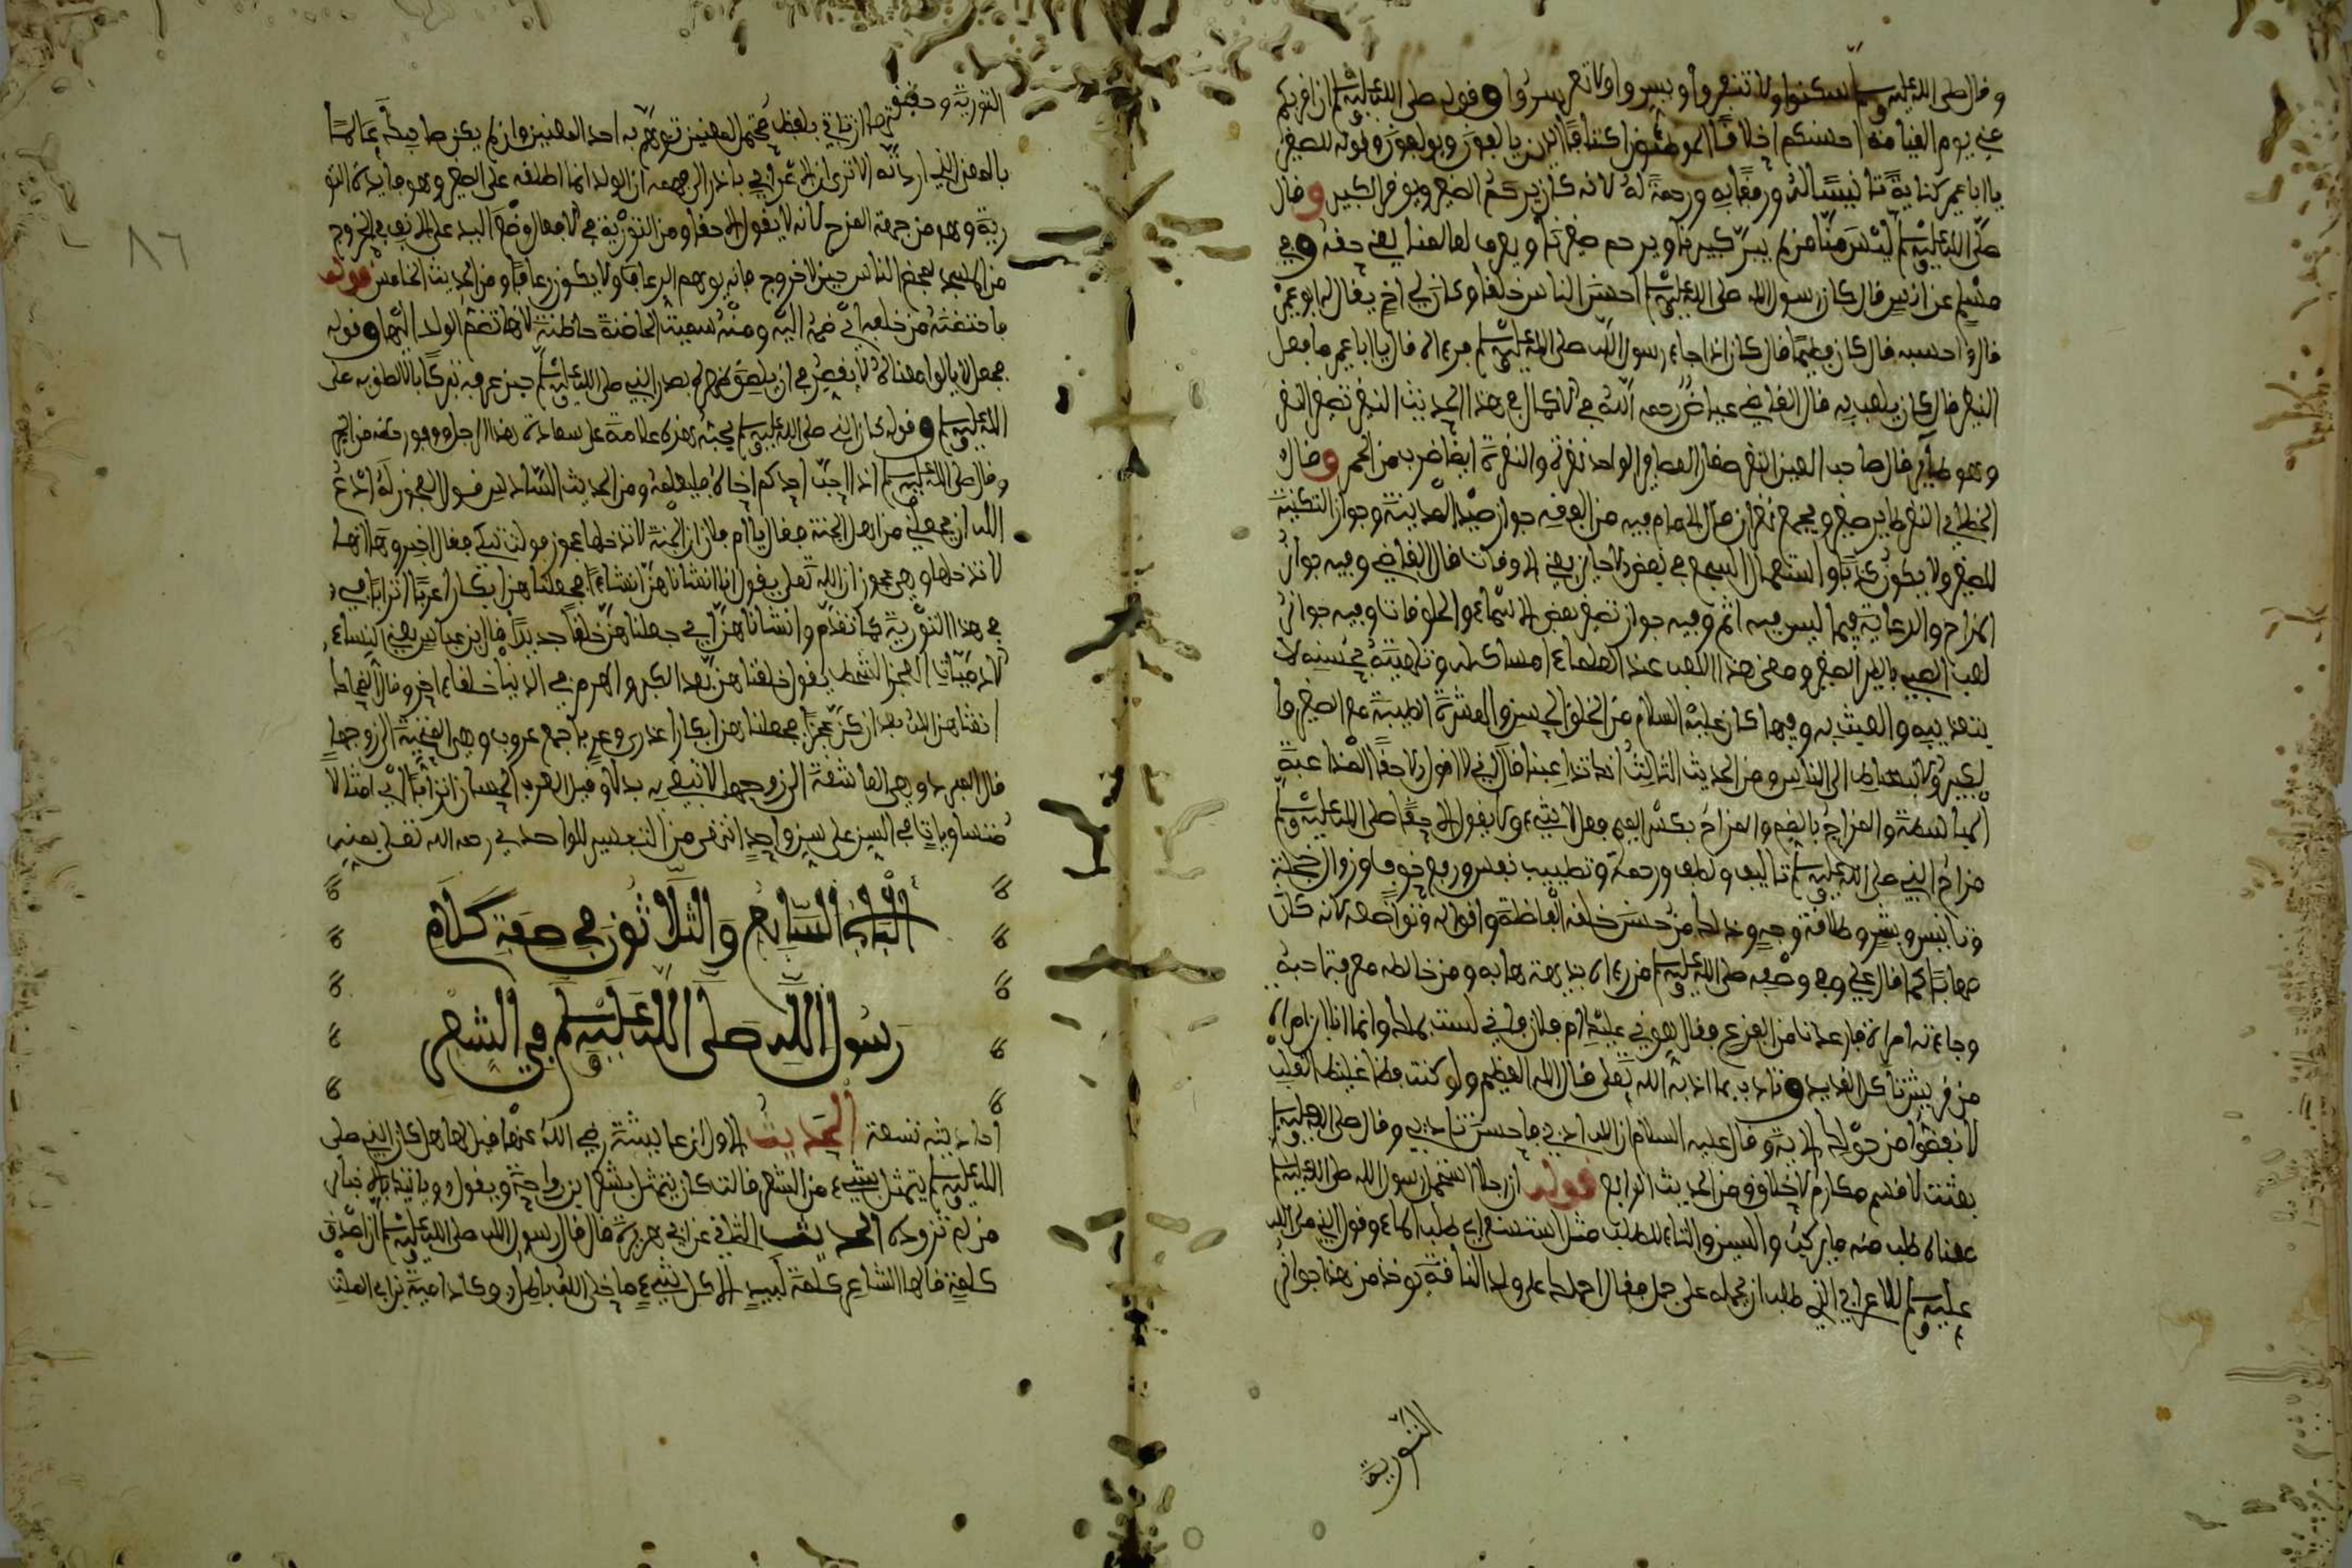 وقال صلى الله عليه وسلم سكنوا ولا تنفروا ويسروا ولا تعسروا وقوله صلى الله عليه وسلم ان اقربكم
مني يوم القيامة احسنكم اخلاقا الموطئون اكنافا الذين يالفون ويولفون وقوله للصغير
يا ابا عمير كناية تانيسا له ورفقا به ورحمة له لانه كان يرحم الصغير ويوقر الكبير وقال
صلى الله عليه وسلم ليس منا من لم يبر كبيرنا ويرحم صغيرنا ويعرف لعالمنا يعني حقه وفي
مسلم عن انس قال كان رسول الله صلى الله عليه وسلم احسن الناس خلقا وكان لي اخ يقال له ابو عمير
قال احسبه قال كان فطيما قال كان اذا جاء رسول الله صلى الله عليه وسلم فراه قال يا ابا عمير ما فعل
النغير قال كان يلعب به قال القاضي عياض رحمه الله في الاكمال في هذا الحديث النغير تصغير النغر
وهو طاير قال صاحب العين النغر صغار العصافر الواحد نغرة والنغرة ايضا ضرب من الحمر وقال
الخطابي النغر طاير صغير ويجمع نغران قال الامام فيه من الفقه جواز صيد المدينة وجواز التكنية
للصغير ولا يكون كذبا واستعمال السجع في بعض الاحايين يعني الاوقات قال القاضي وفيه جواز
المزاح والدعابة فيما ليس فيه اثم وفيه جواز تصغير بعض الاسماء والمخلوقات وفيه جواز
لعب الصبي بالطير الصغير ومعنى هذا اللعب عند العلماء امساكه له وتلهيته بحبسه لا
بتعذيبه والعبث به وفيها كان عليه السلام من الخلق الحسن والعشرة الطيبة مع الصغير
والكبير والانبساط الى الناس ومن الحديث الثالث انك تداعبنا قال اني لا اقول الا حقا المداعبة
المباسمة والمزاح بالضم والمزاح بكسر الميم فعل الاثنين ولا يقول الا حقا صلى الله عليه وسلم
مزاح النبي صلى الله عليه وسلم تاليف ولطف ورحمة وتطييب نفس ورفع خوف وزوال خجلة
وتانيس وبشر وطلاقة وجه وذلك من حسن خلقه الفاظه واقواله وتواضعه لانه كان
مهابا كما قال علي في وصفه صلى الله عليه وسلم من رءاه بديهة هابه ومن خالطه معرفة احبه
وجاءته امراة فارعدت من الفزع فقال هوني عليك ام فلان فاني لست بملك وانما انا ابن امراة
من قريش تاكل القديد وتادب بما ادبه الله تعلى قال الله العظيم ولو كنت فظا غليظ القلب
لانفضوا من حولك الاية وقال عليه السلام ان الله ادبني فاحسن تاديبي وقال صلى الله عليه وسلم
بعثت لاتمم مكارم الاخلاق ومن الحديث الرابع قوله ان رجلا استحمل رسول الله صلى الله عليه وسلم
معناه طلب منه ما يركب والسين والتاء للطلب مثل استسقى اي طلب الماء وقول النبي صلى الله
عليه وسلم للاعرابي الذي طلب ان يحمله على جمل فقال احملك على ولد الناقة يوخذ من هذا جواز
التورية
٨٦
التورية وحقيقتها ان تاتي بلفظ محتمل لمعنيين توهم به احد المعنيين وان لم يكن صاحبك عالما
بالمعنى الذي اردته الا ترى ان الاعرابي بادر الى فهمه ان الولد انما اطلقه على الصغير وهو فايدة التو
رية وهو من جهة المزح لانه لا يقول الا حقا ومن التورية في الافعال وضع اليد على الانف في الخروج
من المسجد لبعض الناس حين الاخروج فانه يوهم الرعاف ولا يكون رعافا ومن الحديث الخامس قوله
فاحتضنه من خلفه اي ضمه اليه ومنه سميت الحاضنة حاضنة لانها تضم الولد اليها وقوله
فجعل لا يالوا معناه لا يقصر في ان يلصق ظهره بصدر النبي صلى الله عليه وسلم حين عرفه تبركا بالالصاق به صلى
الله عليه وسلم وقوله كان النبي صلى الله عليه وسلم يحبه هذه علامة على سعادة هذا الرجل
وقال صلى الله عليه وسلم اذا احب احدكم اخاه فليعلمه ومن الحديث السادس قول العجوز له ادع
الله ان يجعلني من اهل الجنة فقال يا ام فلان ان الجنة لا تدخلها عجوز فولت تبكي فقال اخبروها انها
لا تدخلها وهي عجوز ان الله تعلى يقول انا انشاناهن انشاء فجعلناهن ابكارا عربا اترابا فيه
في هذا التورية كما تقدم وانشاناهن اي جعلناهن خلقا جديدا قال ابن عباس يعني النساء
الادميات العجز الشمط يقول خلقناهن بعد الكبر والهرم في الدنيا خلقا اخر وقال الضحاك
انشاهن الله بعد ان كن عجزا فجعلناهن ابكارا عذارى وعربا جمع عروب وهي الغنجة الى زوجها
قال المبرد وهي العاشقة الى زوجها لا تبتغي به بدلا وقيل العرب الحسان اترابا اي امثالا
متساويات في السن على سن واحد انتهى من التفسير للواحدي رحمه الله تعلى بمنه
الباب السابع والثلاثون في صفة كلام
رسول الله صلى الله عليه وسلم في الشعر
احاديثه تسعة الحديث الاول عن عايشة رضي الله عنها قيل لها هل كان النبي صلى
الله عليه وسلم يتمثل بشيء من الشعر قالت كان يتمثل بشعر ابن رواحة ويقول وياتيك بالاخبار
من لم تزوده الحديث الثاني عن ابي هريرة قال قال رسول الله صلى الله عليه وسلم ان اصدق
كلمة قالها الشاعر كلمة لبيد الا كل شيء ما خلا الله باطل وكاد امية بن ابي الصلت